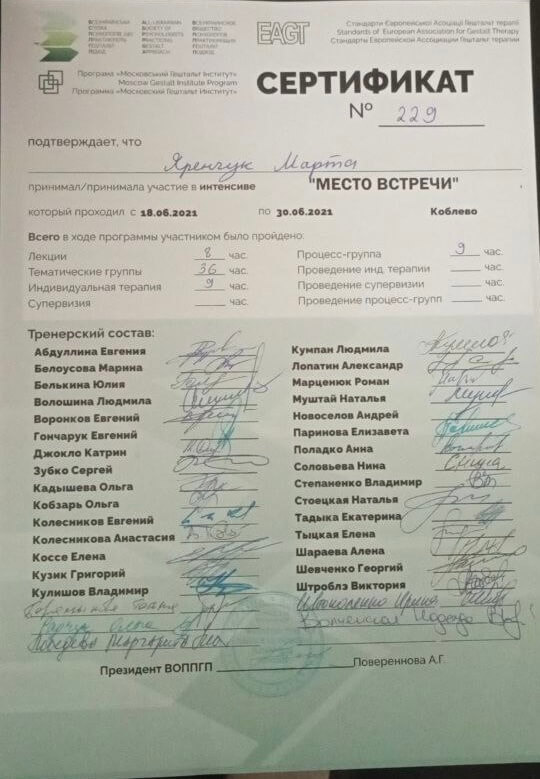 ВСЕУКРАЇНСЬКА СПІЛКА ПСИХОЛОГІВ, ЩО ПРАКТИКУЮТЬ ГЕШТАЛЬТ ПІДХІД
ALL-UKRAINIAN SOCIETY OF PSYCHOLOGISTS PRACTISING GESTALT APPROACH
ВСЕУКРАИНСКОЕ ОБЩЕСТВО ПСИХОЛОГОВ ПРАКТИКУЮЩИХ ГЕШТАЛЬТ ПОДХОД
EAGT
Стандарти Європейської Асоціації Гештальт терапії
Standards of European Association for Gestalt Therapy
Стандарты Европейской Ассоциации Гештальт терапии
Програма «Московський Гештальт Інститут»
Moscow Gestalt Institute Program
Программа «Московский Гештальт Институт»
СЕРТИФИКАТ
№ 229
подтверждает, что
Яренчук Марта
принимал/принимала участие в интенсиве "МЕСТО ВСТРЕЧИ"
который проходил с 18.06.2021 по 30.06.2021 Коблево
Всего в ходе программы участником было пройдено:
Лекции 8 час.
Тематические группы 36 час.
Индивидуальная терапия 9 час.
Супервизия час.
Процесс-группа 9 час.
Проведение инд терапии час.
Проведение супервизии час.
Проведение процесс-групп час.
Тренерский состав:
Абдуллина Евгения
Белоусова Марина
Белькина Юлия
Волошина Людмила
Воронков Евгений
Гончарук Евгений
Джокло Катрин
Зубко Сергей
Кадышева Ольга
Кобзарь Ольга
Колесников Евгений
Колесникова Анастасия
Коссе Елена
Кузик Григорий
Кулишов Владимир
Кумпан Людмила
Лопатин Александр
Марценюк Роман
Муштай Наталья
Новоселов Андрей
Паринова Елизавета
Поладко Анна
Соловьева Нина
Степаненко Владимир
Стоецкая Наталья
Тадыка Екатерина
Тыцкая Елена
Шараева Алена
Шевченко Георгий
Штроблэ Виктория
Президент ВОППГП Поверенова А.Г.